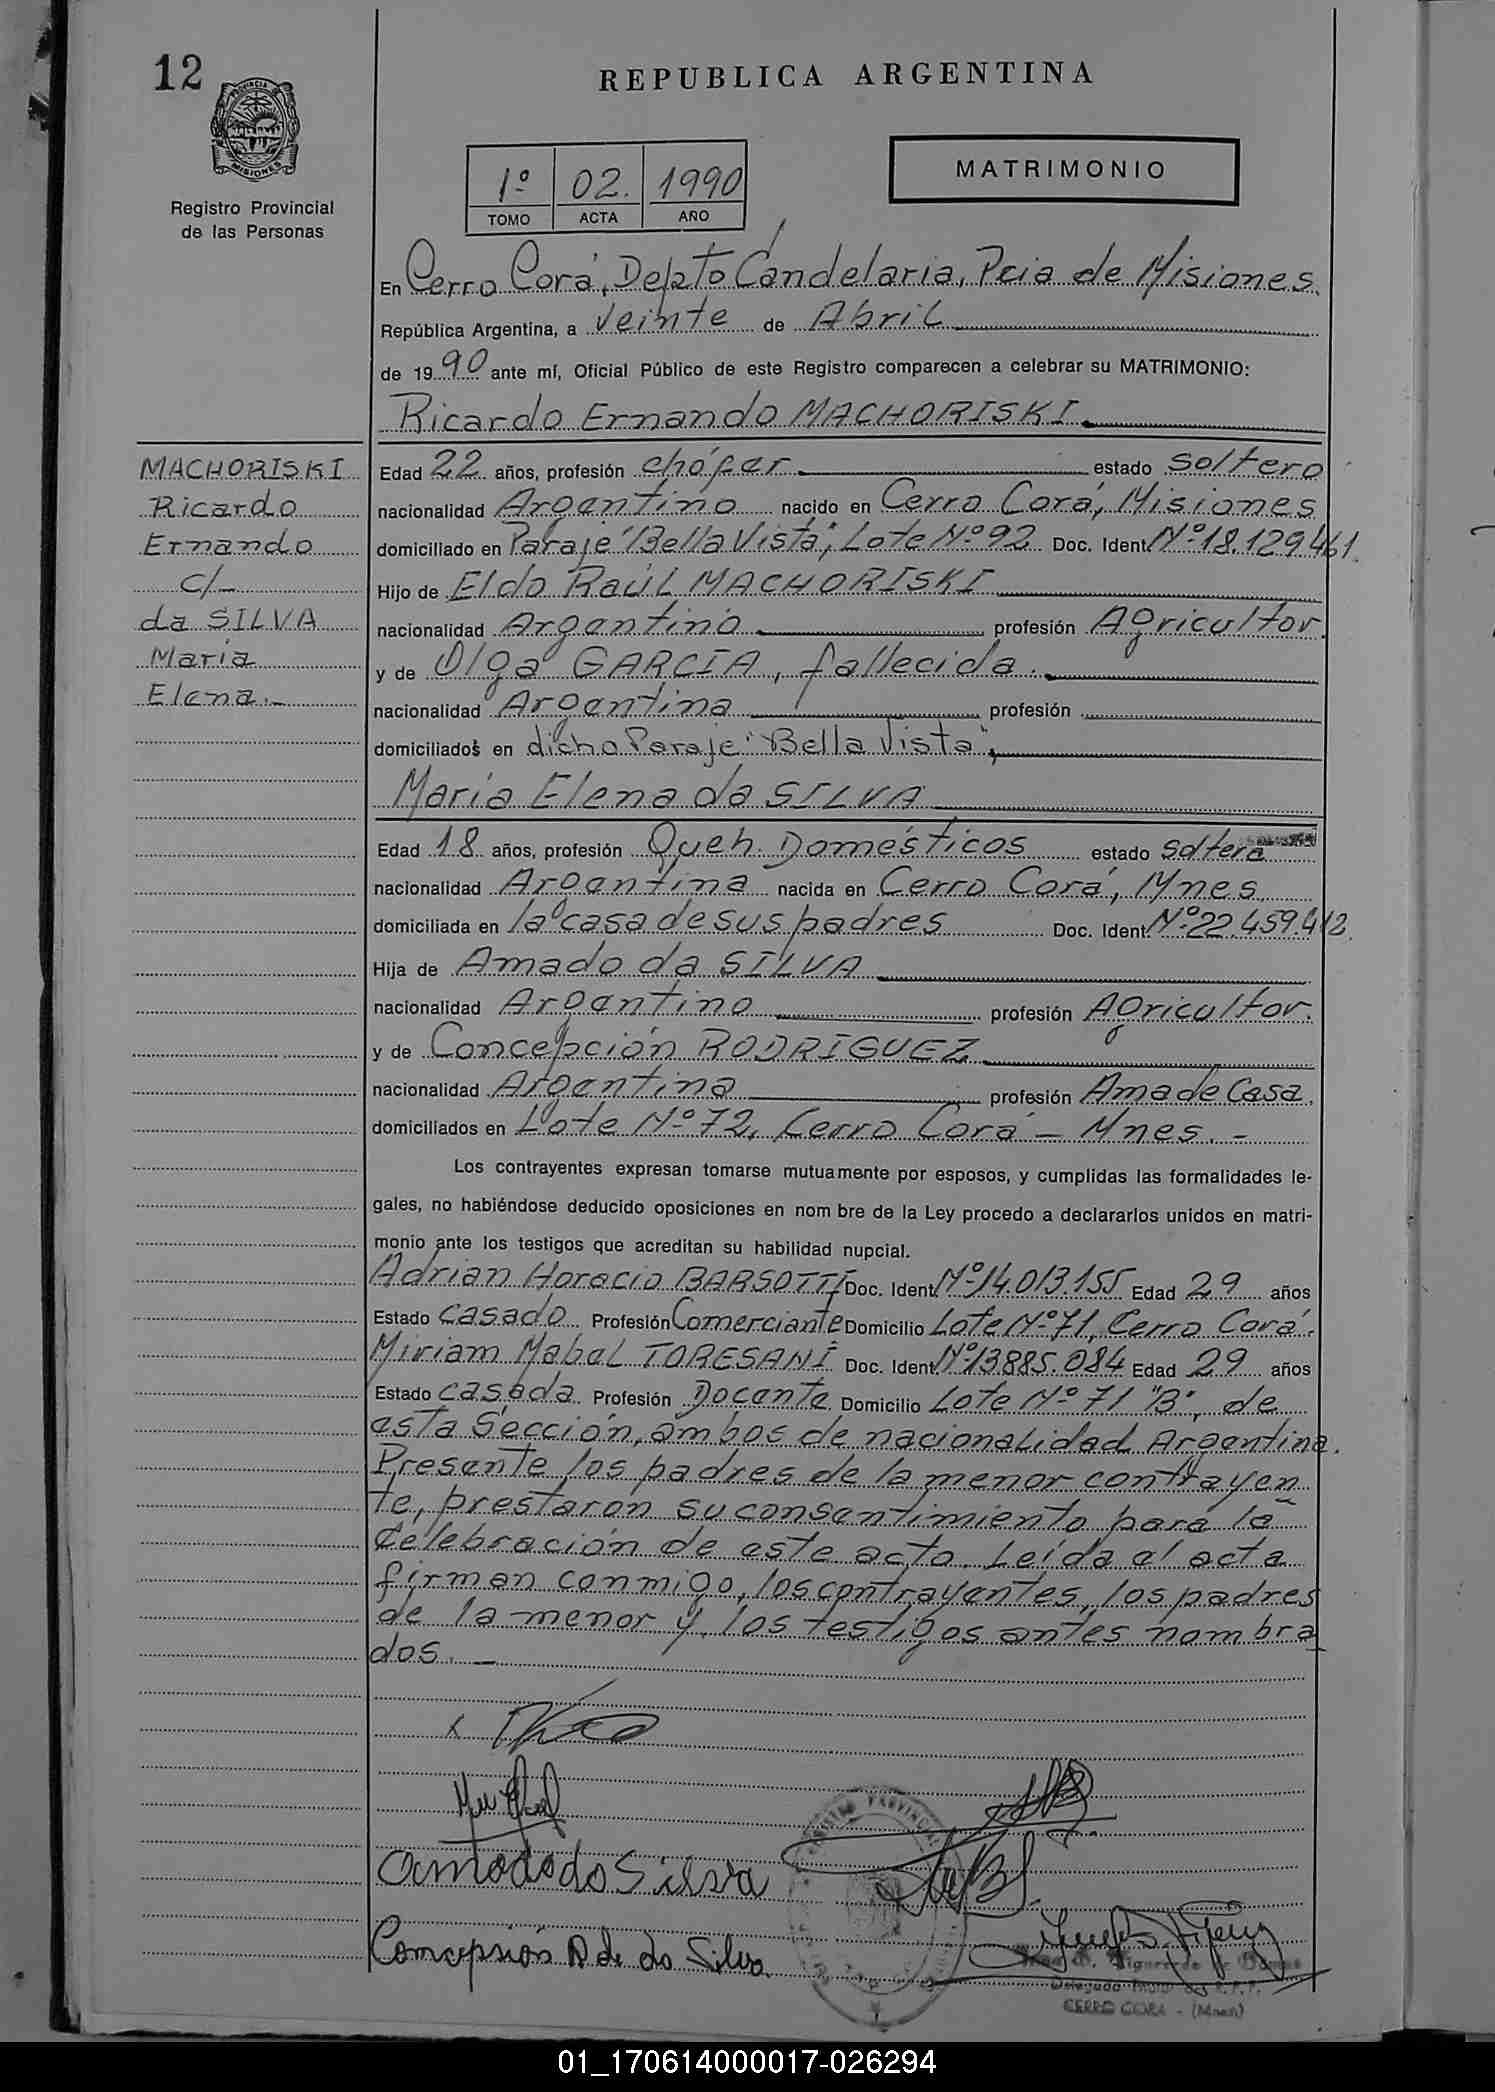 12
REPUBLICA ARGENTINA
PROVINCIA DE MISIONES
Registro Provincial
de las Personas
1º 02. 1990
TOMO ACTA AÑO
MATRIMONIO
En Cerro Corá, Depto Candelaria, Pcia de Misiones.
República Argentina, a veinte de Abril
de 1990 ante mí, Oficial Público de este Registro comparecen a celebrar su MATRIMONIO:
Ricardo Ernando MACHORISKI
MACHORISKI
Ricardo
Ernando
c/-
da SILVA
María
Elena.-
Edad 22 años, profesión chófer estado soltero
nacionalidad Argentino nacido en Cerro Corá, Misiones
domiciliado en Paraje "Bella Vista", Lote Nº 92 Doc. Ident. Nº 18.129.461.
Hijo de Eldo Raúl MACHORISKI
nacionalidad Argentino profesión Agricultor
y de Olga GARCIA, fallecida.
nacionalidad Argentina profesión
domiciliados en dicho Paraje "Bella Vista",
María Elena da SILVA
Edad 18 años, profesión Queh. Domésticos estado soltera
nacionalidad Argentina nacida en Cerro Corá, Mnes.
domiciliada en la casa de sus padres Doc. Ident. Nº 22.459.412.
Hija de Amado da SILVA
nacionalidad Argentino profesión Agricultor.
y de Concepción RODRIGUEZ
nacionalidad Argentina profesión Ama de Casa.
domiciliados en Lote Nº 72, Cerro Corá - Mnes. -
Los contrayentes expresan tomarse mutuamente por esposos, y cumplidas las formalidades le-
gales, no habiéndose deducido oposiciones en nom bre de la Ley procedo a declararlos unidos en matri-
monio ante los testigos que acreditan su habilidad nupcial.
Adrian Horacio BARSOTTI Doc. Ident. Nº 14.013.155 Edad 29 años
Estado casado Profesión Comerciante Domicilio Lote Nº 71, Cerro Corá.
Miriam Mabel TORESANI Doc. Ident. Nº 13.885.084 Edad 29 años
Estado casada Profesión Docente Domicilio Lote Nº 71 "B", de
esta Sección, ambos de nacionalidad Argentina.
Presente los padres de la menor contrayen
te, prestaron su consentimiento para la
celebración de este acto. Leída el acta
firman conmigo, los contrayentes, los padres
de la menor y los testigos antes nombra
dos. -
Amado do Silva
Concepsión R de da Silva
REGISTRO PROVINCIAL
CERRO CORA - (Mnes)
01_170614000017-026294